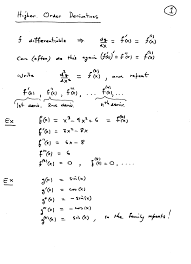 Higher Order Derivatives
1
f differentiable ⇒ dy/dx = f'(x) = f⁽¹⁾(x)
Can (often) do this again (f'(x))' = f''(x) = f⁽²⁾(x)
Write d²y/dx² = f⁽²⁾(x), and repeat
f⁽¹⁾(x), f⁽²⁾(x), f⁽³⁾(x), ... f⁽ⁿ⁾(x)
1st deriv, 2nd deriv, nth deriv
Ex f(x) = x³ - 4x² + 6 = f⁽⁰⁾(x)
f'(x) = 3x² - 8x
f''(x) = 6x - 8
f'''(x) = 6
f⁽⁴⁾(x) = 0, f⁽⁵⁾(x) = 0, ....
Ex g(x) = sin(x)
g'(x) = cos(x)
g''(x) = -sin(x)
g'''(x) = -cos(x)
g⁽⁴⁾(x) = sin(x), so the family repeats!